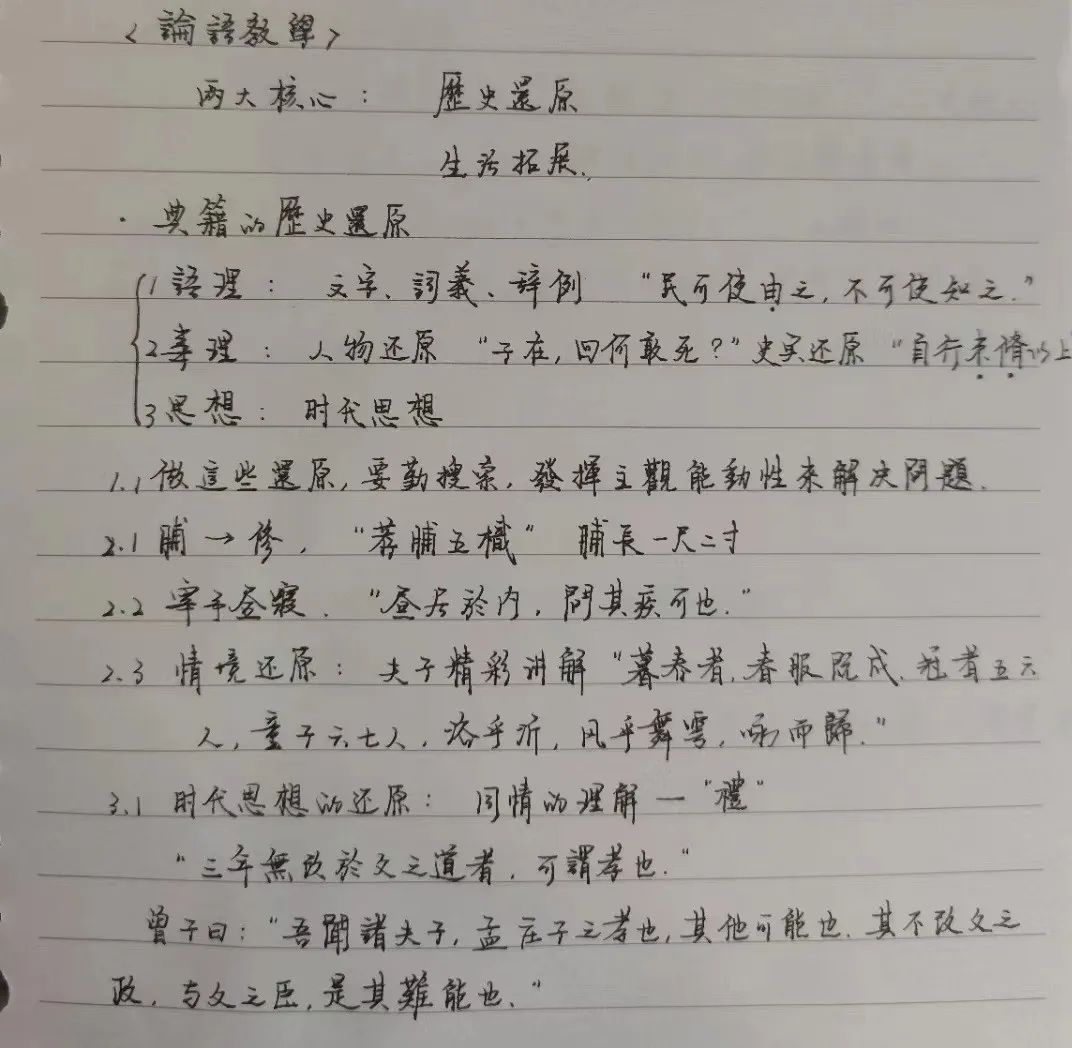 <論語教學>
两大核心： 歷史還原
生活拓展.
·典籍的歷史還原
1 語理： 文字、詞義、辞例 “民可使由之，不可使知之.”
2 事理： 人物还原 “子在，回何敢死？”史实还原 “自行束脩以上
3 思想： 时代思想
1.1 做這些還原，要勤搜索，發揮主觀能動性来解决問題.
2.1 脯→脩， “荐脯五樴” 脯長一尺二寸
2.2 宰予昼寢. “昼居於内，問其疾可也.”
2.3 情境还原： 夫子精彩讲解 “暮春者，春服既成、冠者五六
人，童子六七人，浴乎沂，风乎舞雩，咏而歸.”
3.1 时代思想的还原： 同情的理解一“禮”
“三年無改於父之道者，可謂孝也.”
曾子曰：“吾聞諸夫子，孟庄子之孝也，其他可能也.其不改父之
政，与父之臣，是其難能也.”